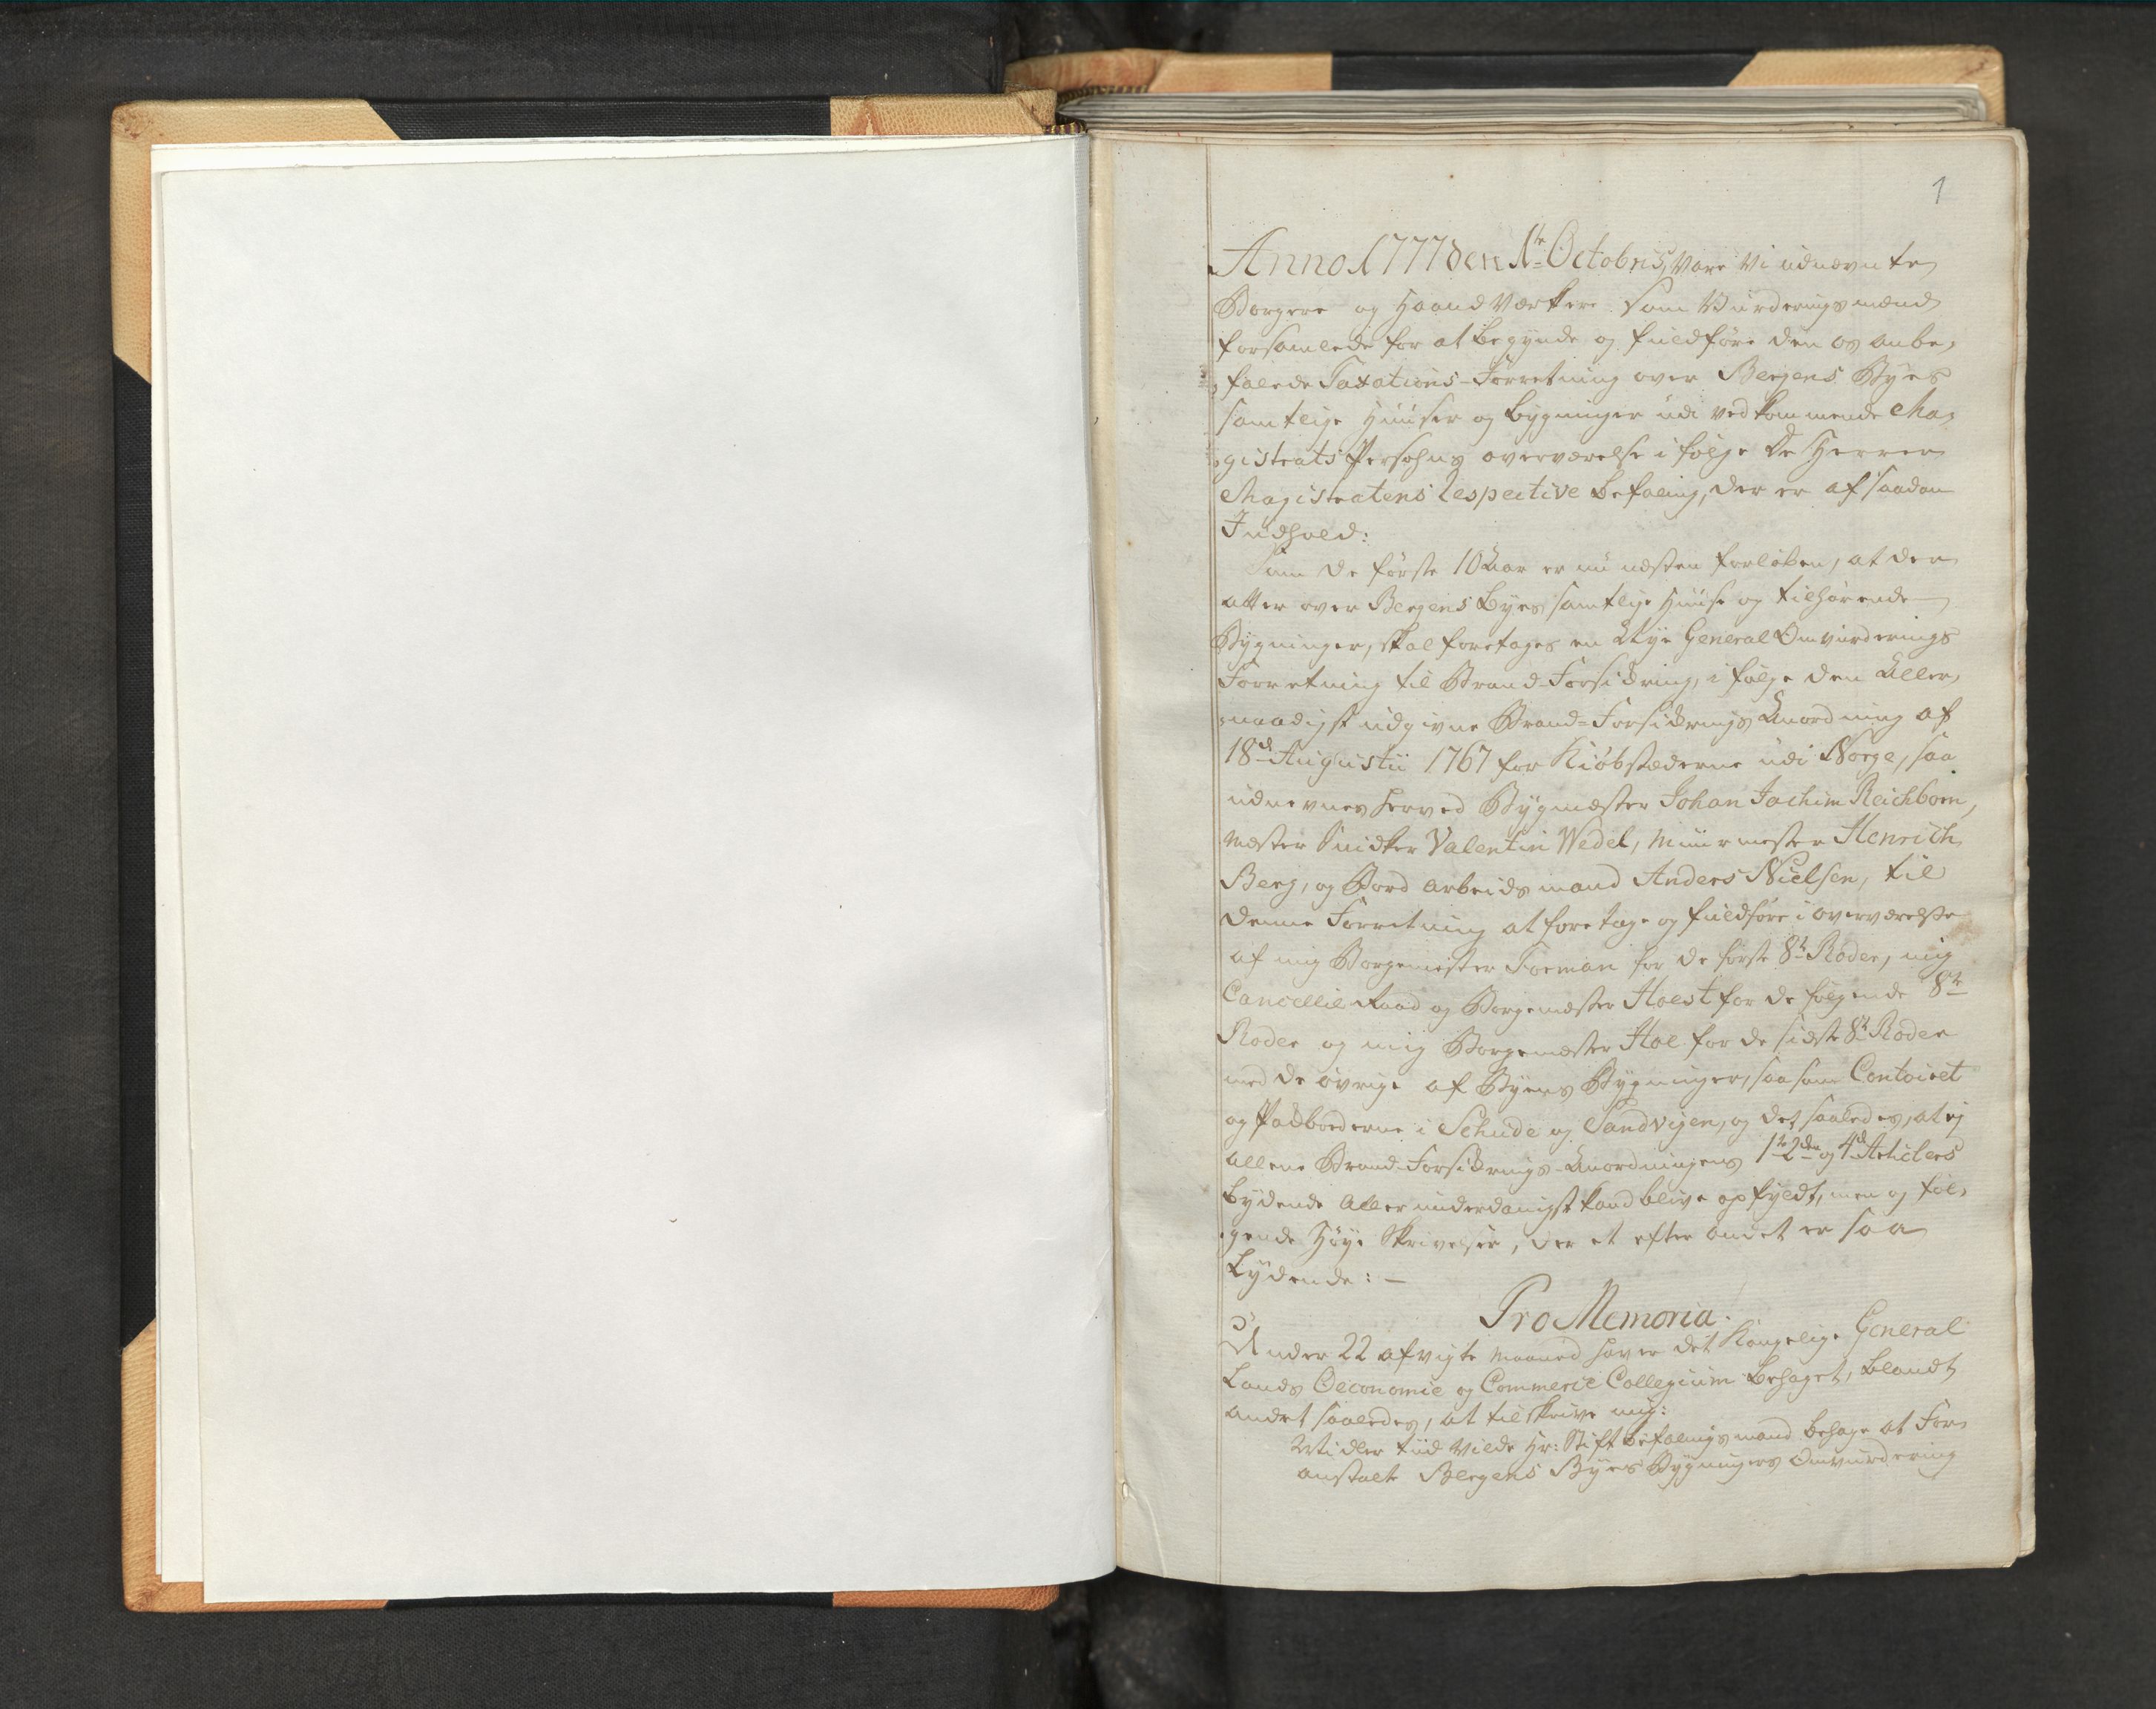 1
Anno 1777 den 1te Octobris, Vare Vi udnævnte
Borgere og HaandVærkere som Vurderingsmænd
forsamlede for at begynde og fuldføre den os anbe,
,falede Taxations-Forretning over Bergens Byes
samtlige Huuser og bygninger udi vedkommende Ma,
,gistrats Persohns overværelse i følge De Herrer
Magistratens Respective befaling, der er af saadan
Indhold:
Som de første 10 Aar er nu næsten forløben, at der
atter over Bergens Byes samtlige Huuse og tilhørende
Bygninger, skal foretages en Nye General Omvurderings
Forretning til Brand-Forsikring, i følge den Aller,
,naadigst udgivne Brand-Forsikrings Anordning af
18d Augustii 1767 for Kiøbstæderne udi Norge, saa
udnevnes herved Bygmæster Johan Jachim Reichborn,
Mæster Snidker Valentin Wedel, Muurmester Henrich
Berg, og Bord arbeidsmand Anders Nielsen, til
denne Forretning at foretage og fuldføre i overværelse
af mig Borgemester Forman for de første 8te Roder, mig
Cancellie Raad og Borgemæster Hoest for de følgende 8te
Roder og mig Borgemæster Hoe for de sidste 8te Roder
med de øvrige af Byens Bygninger, saasom Contoiret
og Pakboderne i Schude og Sandvigen, og det saaledes, at ej
allene Brand-Forsikrings-Anordningens 1te 2den og 4d Articlers
Lydende allerunderdanigst kand blive opfyldt, men og føl,
,gende Høye Skrivelser, der et efter andet er saa
Lydende: —
Pro Memoria.
Under 22 afvigte Maaned haver det Kongelige General
Lands Oeconomie og Commerce Collegium behaget, blandt
andet saaledes, at tilskrive mig:
Midler tiid vilde Hr: Stiftbefalingsmand behage at For,
anstalte Bergens Byes Bygningers Omvurdering